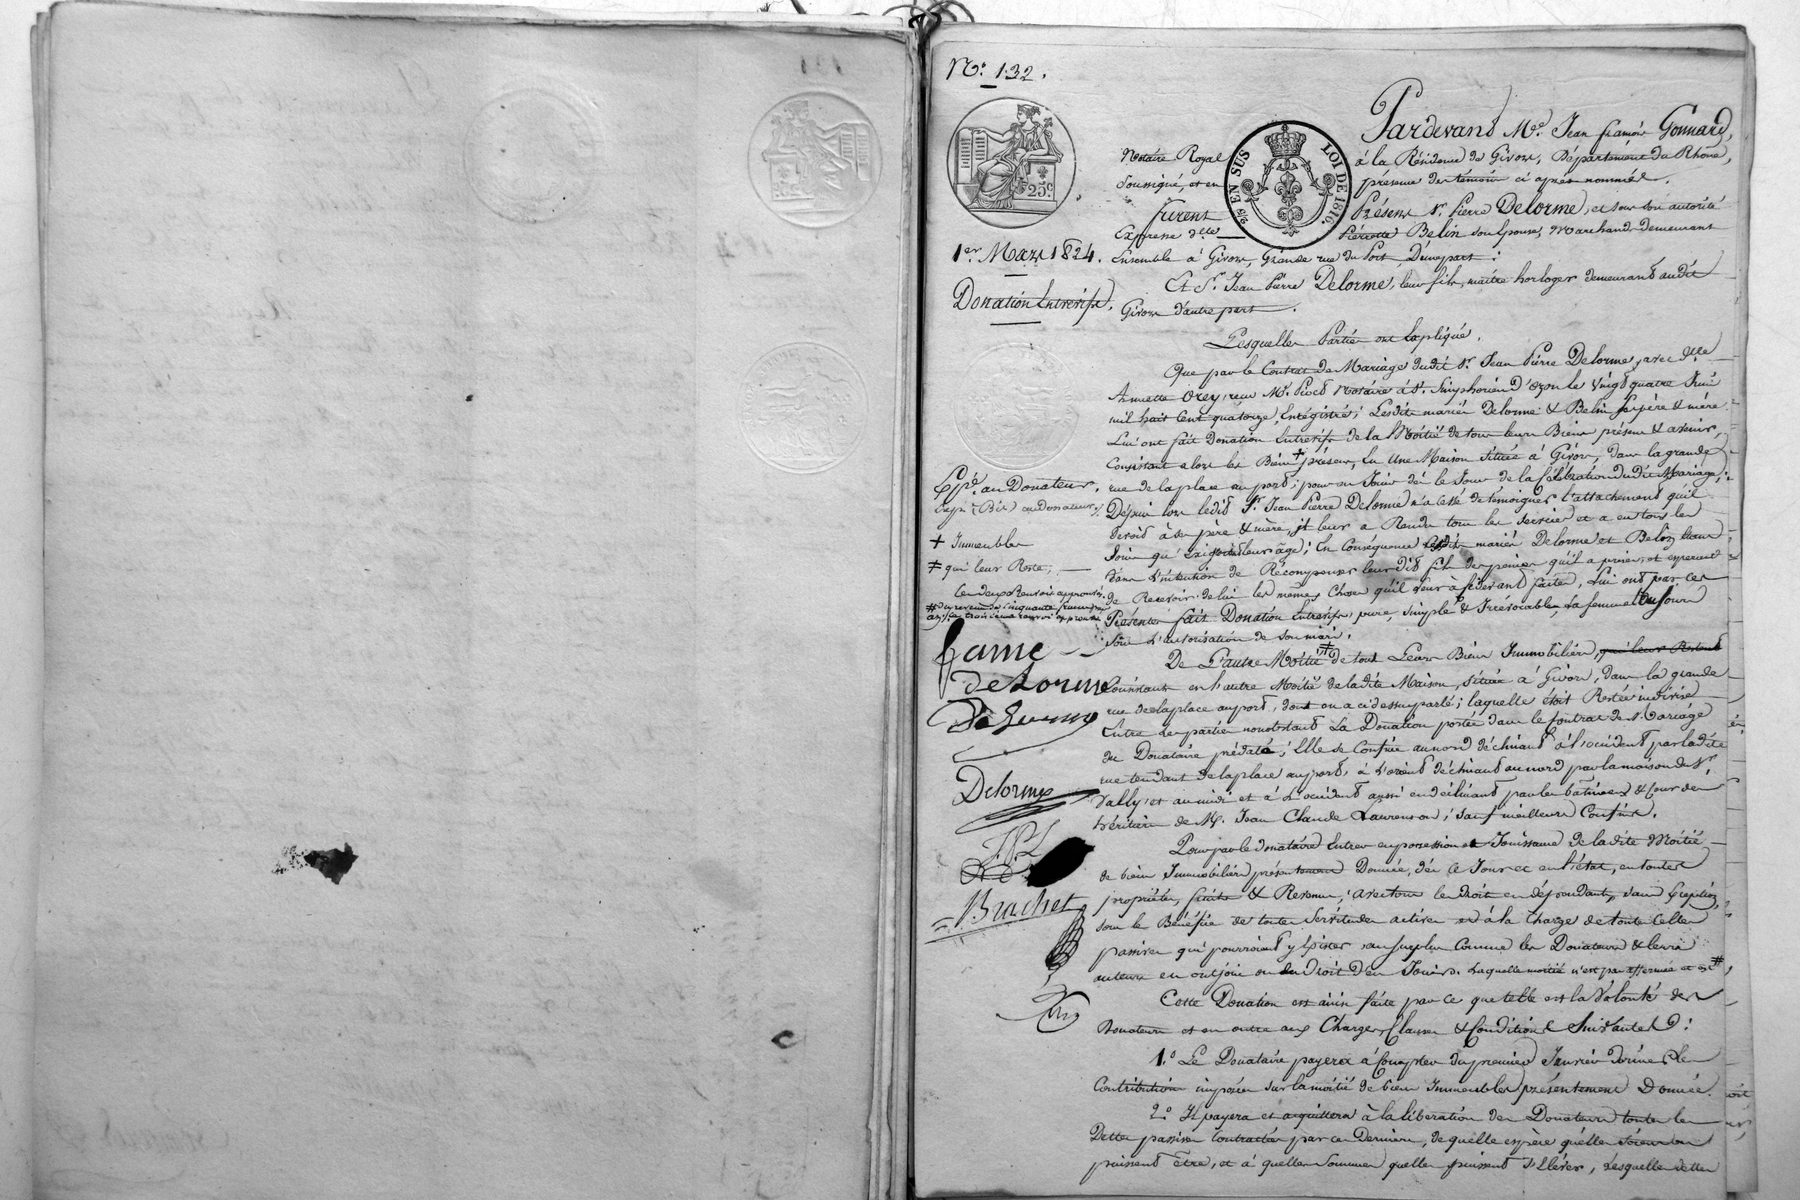 N.o 132.
25.c
EN SUS
LOI DE 1816.
1.er Mars 1824.
Donation Entrevifs.
Pardevant M.e Jean françois Gonnard,
Notaire Royal à la Résidence de Givors, Département du Rhône,
soussigné, et en présence des témoins ci après nommés.
furent Présens Sr. Pierre Delorme, et sous son autorité
Expresse d.lle Pierrette Belin son Epouse, Marchands demeurant
Ensemble à Givors, Grande rue du Port, D'unepart;
Et Sr. Jean Pierre Delorme, leur fils, maître horloger demeurant audit
Givors d'autre part.
Lesquelles Parties ont Expliqué,
Que par le Contrat de Mariage dudit Sr. Jean Pierre Delorme, avec d.lle
Annette Orey, reçu M.e Piod Notaire à St. Simphorien d'ozon le Vingt quatre Juin
mil huit Cent quatorze, Enrégistré; Lesdits mariés Delorme & Belin ses père & mère
Lui ont fait Donation Entrevifs de la Moitié de tous leurs Biens présens & avenir,
Consistant alors les Biens + présens, En Une Maison Située à Givors, dans la grande
rue de la place au port; pour en Jouir dès le Jour de la Célébration dudit Mariage;
Dépuis lors ledit Sr. Jean Pierre Delorme n'a Cessé de témoigner l'attachement qu'il
devoit à ses père & mère, il leur a Rendu tous les services et a eu tous les
soins qu'exigeoit leur âge; En Conséquence lesdits mariés Delorme et Belin
dans L'intention de Récompenser leur dit fils des peines qu'il a prises, et espérant
de Recevoir de lui les mêmes Choses qu'il leur a cidevant faites, Lui ont par ces
Présentes fait Donation Entrevifs, pure, simple & Irrévocable, La femme toujours
sous L'autorisation de son mari,
De L'autre Moitié ≠ de tous Leurs Biens Immobiliers, qui leur Restent
Consistant en L'autre Moitié de ladite Maison, située à Givors, dans la grande
rue de la place au port, dont on a ci dessus parlé; laquelle étoit Restée indivise
Entre les parties nonobstant La Donation portée dans le Contrat de Mariage
du Donataire prédaté; Elle se Confine au nord déclinant à l'occident par ladite
rue tendant de la place au port, à L'orient déclinant au nord par la maison de Sr.
Vally, et au midi et à L'occident aussi en déclinant par les batimens & Cour des
héritiers de M. Jean Claude Laurenson; sauf meilleurs Confins.
Pour par le donataire Entrer en possession et Jouissance de ladite Moitié
de biens Immobiliers présentement Donnée, dès ce Jour et en l'état, en toutes
propriétés, fruits & Revenus, avec tous les droits en dépendant, sans Exception,
sous le Bénéfice de toutes Servitudes actives et à la Charge de toutes Celles
passives qui pourroient y Exister, au surplus Comme les Donateurs & leurs
auteurs en ont joui ou eu Droit d'en Jouir. Laquelle moitié n'est pas affermée et est #
Cette Donation est ainsi faite par ce que telle est la Volonté des
Donateurs et en outre aux Charges, Clauses & Conditions Suivantes:
1.o Le Donataire payera à Compter du premier Janvier dernier Les
Contributions imposées sur la moitié de biens Immeubles présentement Donnée.
2.o Il payera et acquittera à la libération des Donateurs toutes les
Dettes passives Contractées par ces Derniers, de quelle espèce qu'elles soient ou
puissent être, et à quelles Sommes qu'elles puissent S'Elever, Lesquelles dettes
Exp.é au Donateur.
Exp. (Bis) au donateur
+ Immeubles
≠ qui leur Reste,
Les deux Renvois approuvés.
# du revenu de Cinquante francs
fame
deLorme
Delorme
J.P.L
Brachet